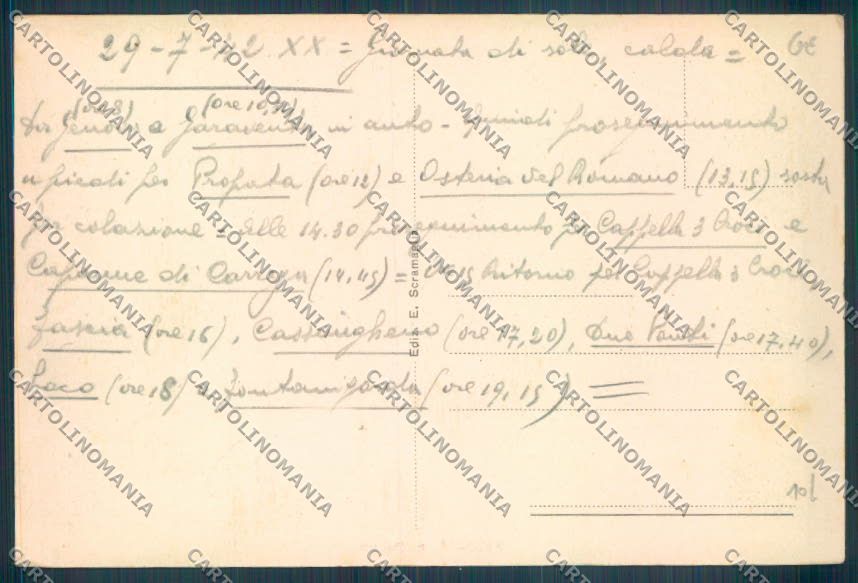 29-7-42 XX = Giornata di sole, calda = GE
(ore 8) (ore 10,30)
Da Genova a Garaventa in auto - Quindi proseguimento
a piedi per Propata (ore 12) e Osteria del Romano (13,15) sosta
per colazione = alle 14.30 proseguimento per Cappella 3 Croci e
Capanne di Carrega (14,45) = Ritorno per Cappella 3 Croci,
Fascia (ore 16), Cassingheno (ore 17,20), Due Ponti (ore 17,40),
Loco (ore 18) Fontanigorda (ore 19,15) =
Ediz. E. Scramaglia
CARTOLINOMANIA